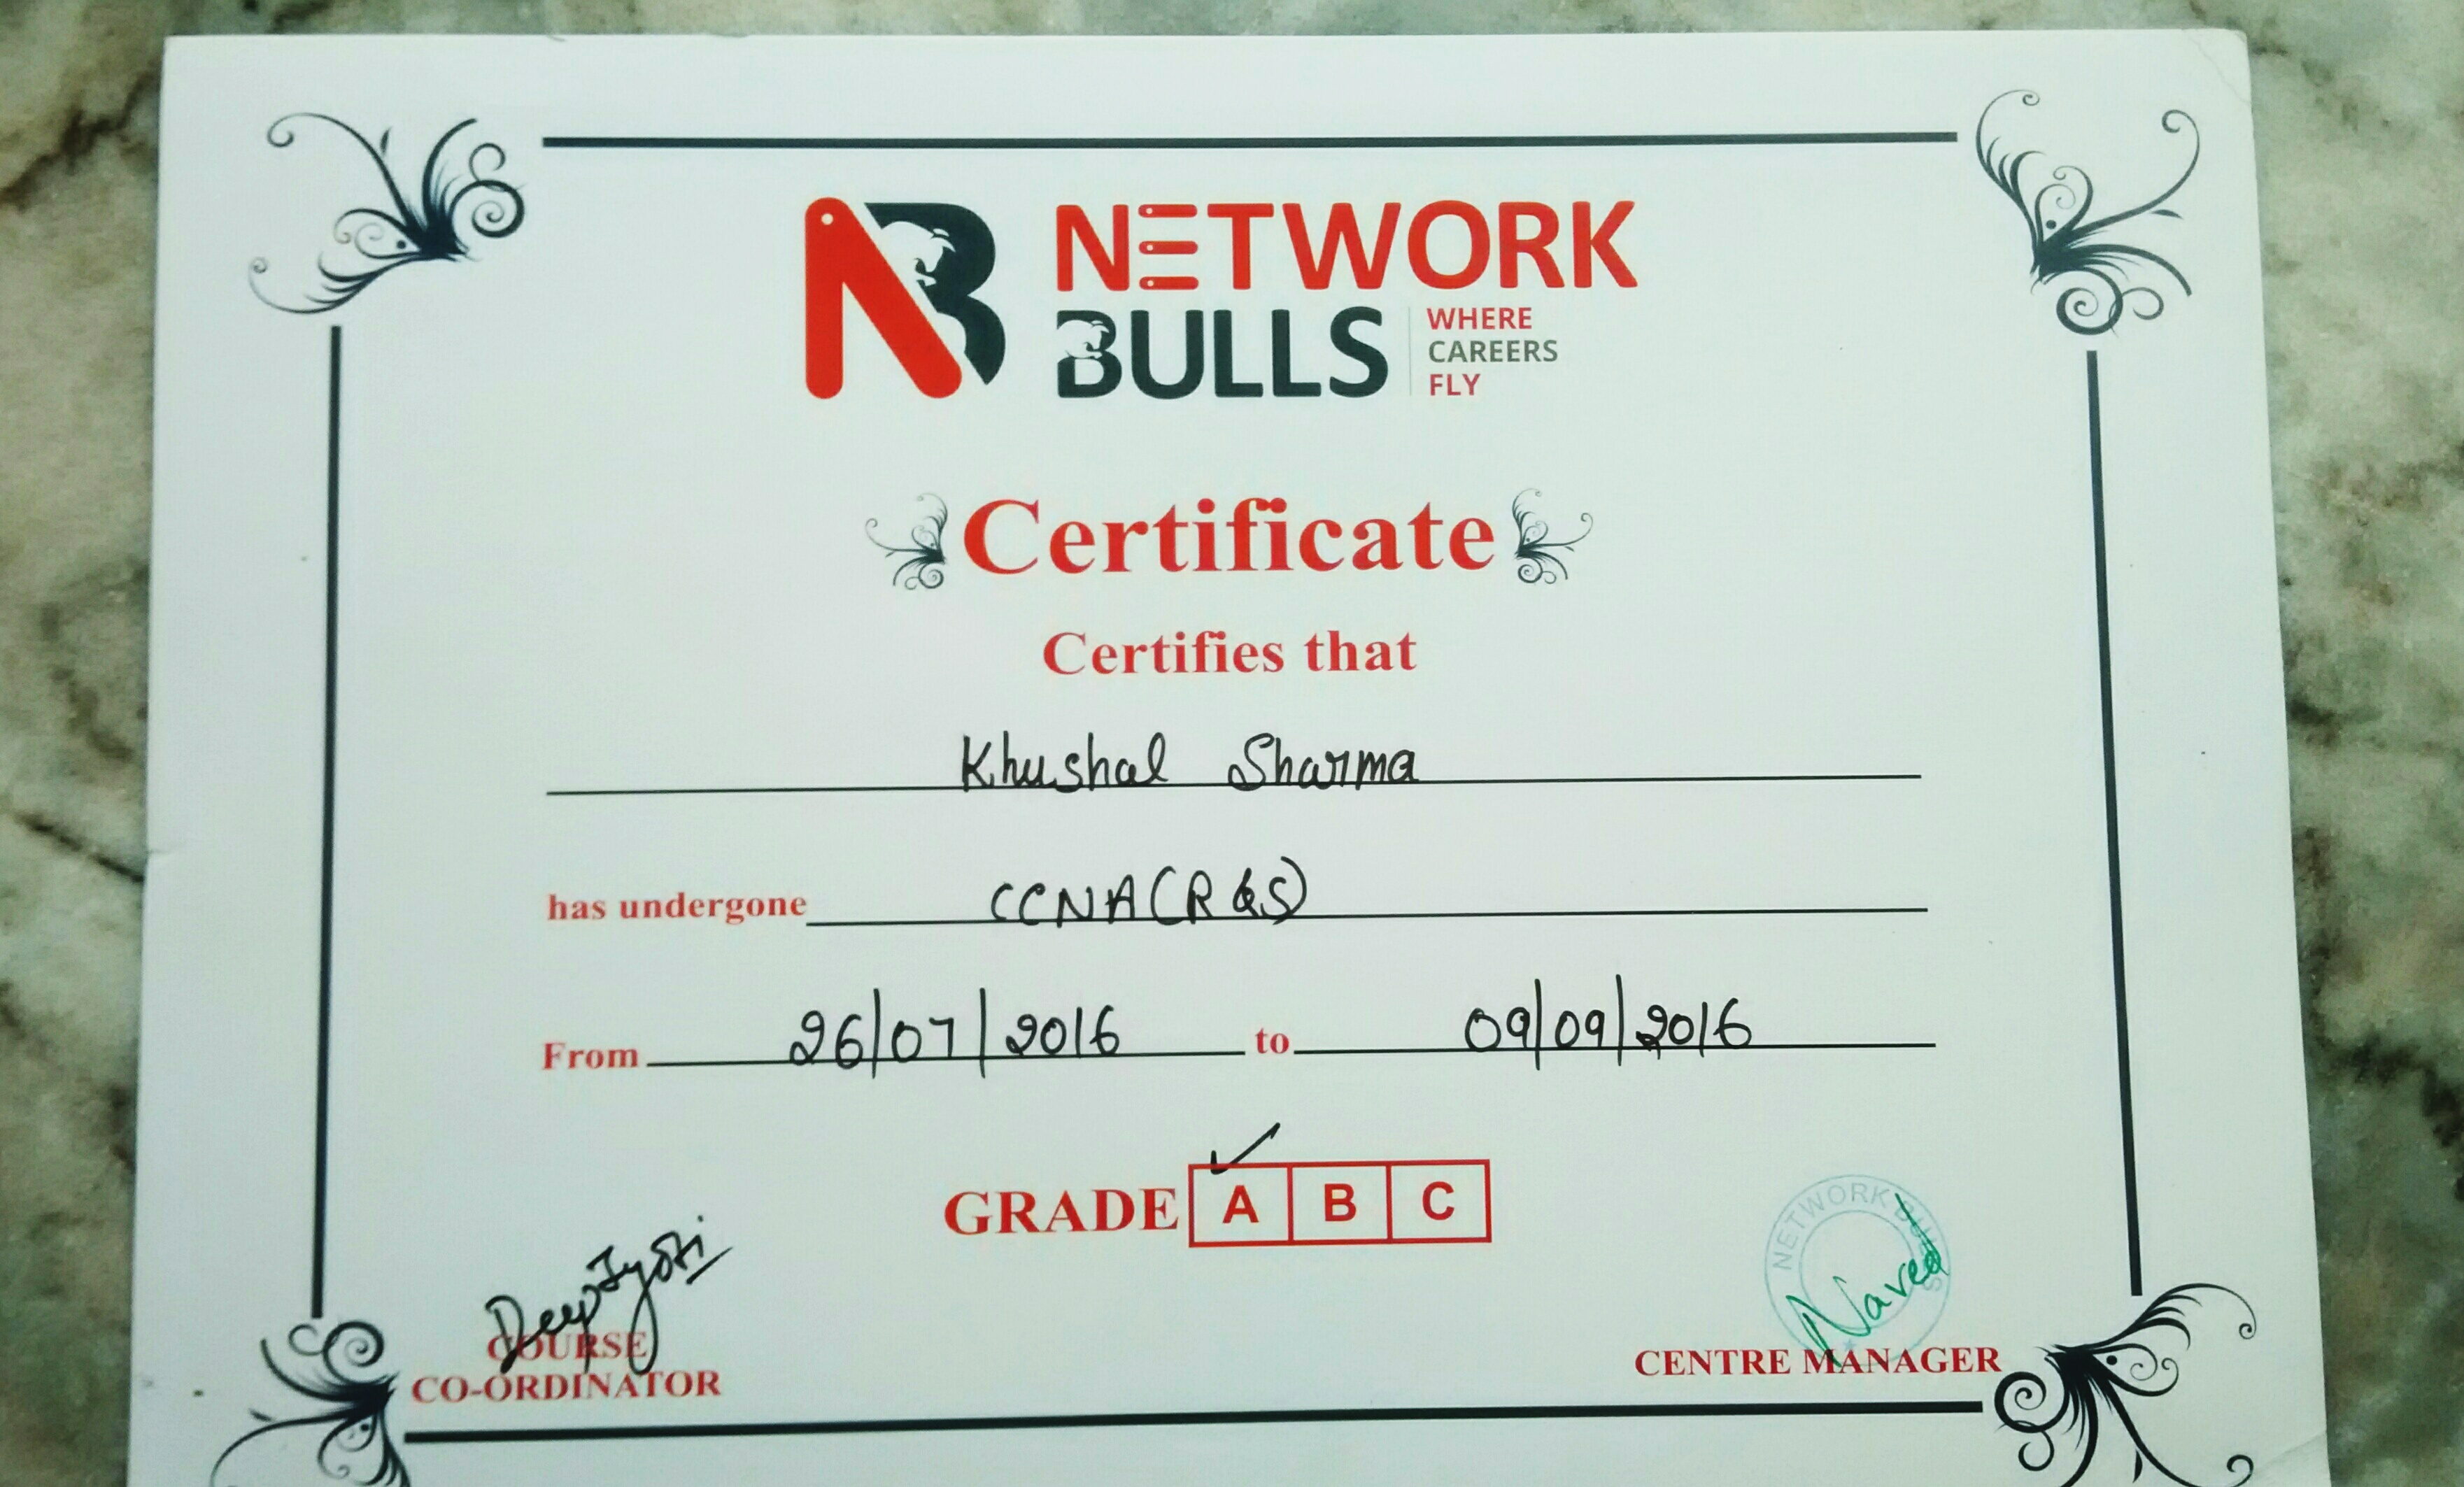 NB NETWORK
BULLS
WHERE
CAREERS
FLY
Certificate
Certifies that
Khushal Sharma
has undergone CCNA (R&S)
From 26/07/2016 to 09/09/2016
GRADE A B C
DeepJyoti
COURSE
CO-ORDINATOR
NETWORK BULLS
Naved
CENTRE MANAGER